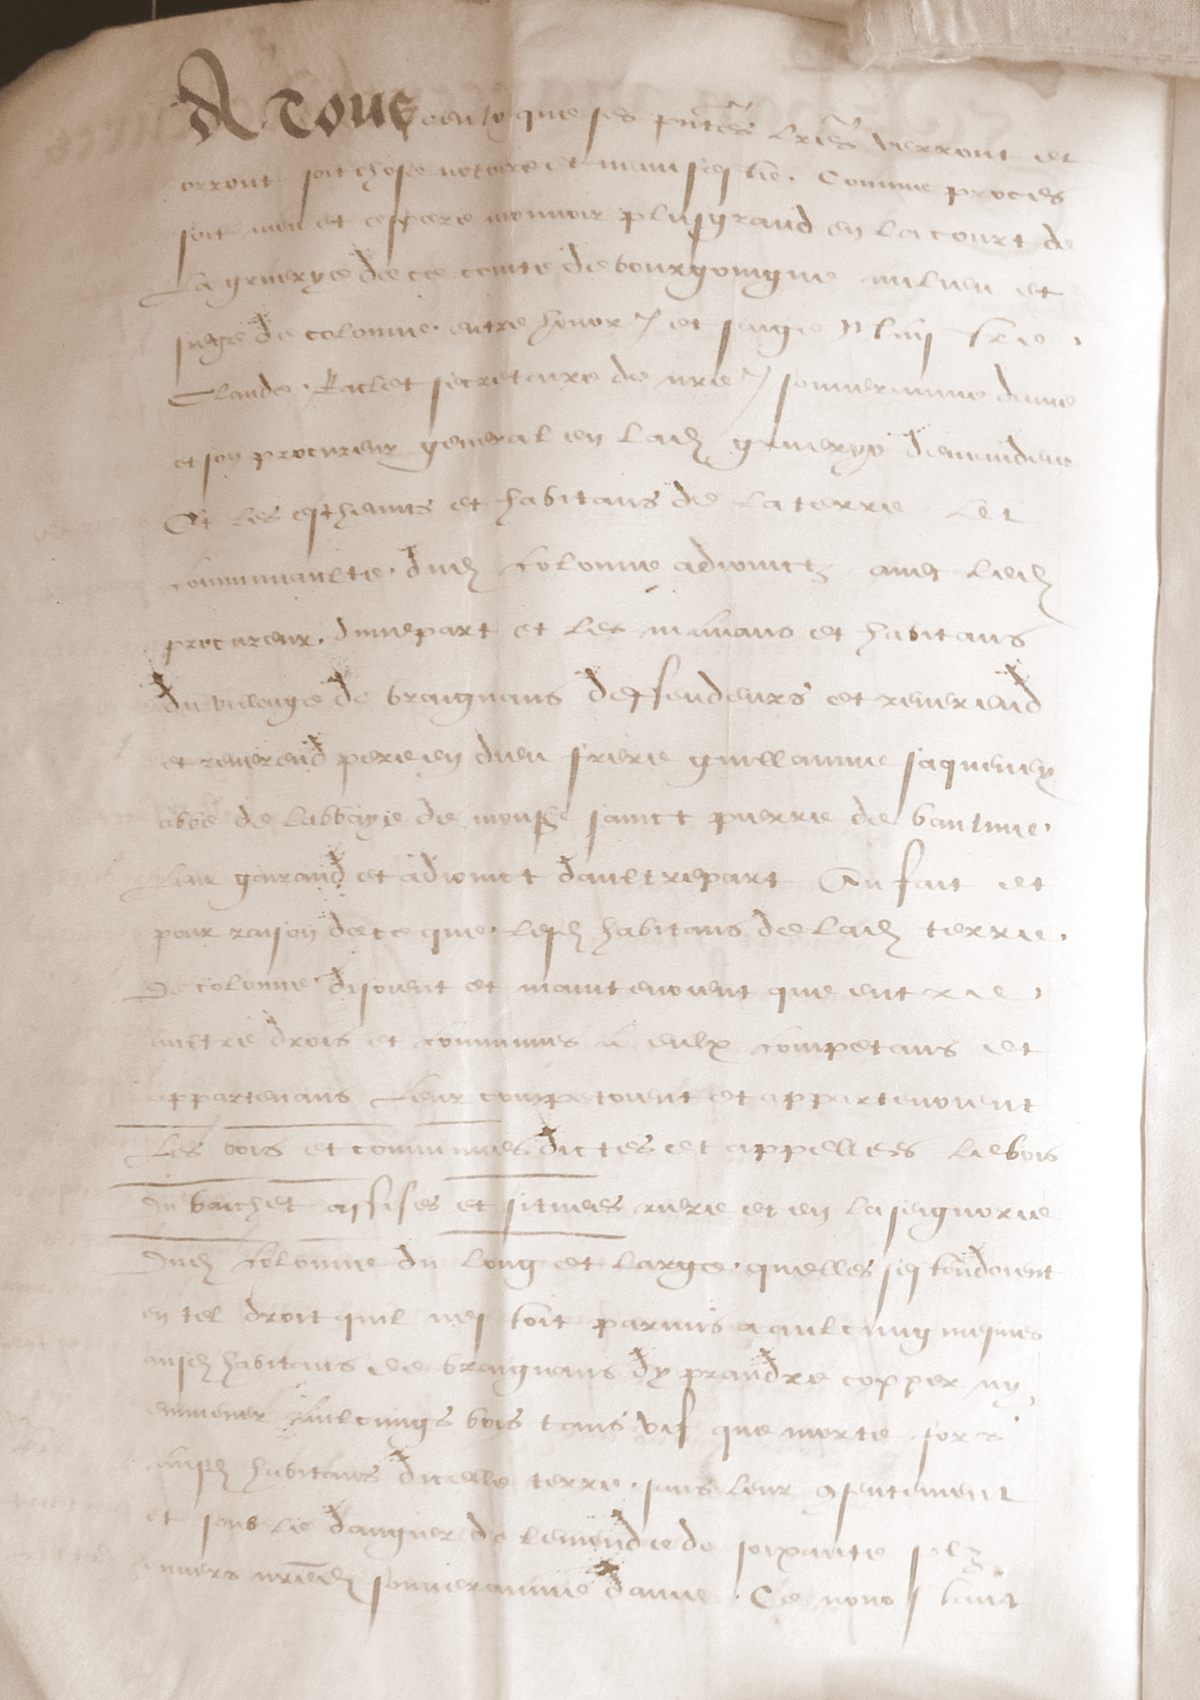 A Tous ceulx que ses pntes lres verront et
orront soit chose notoire et manifeste. Comme proces
soit meu et espere mouvoir plus grand en la court de
La gruerye de ce conte de bourgoingne au lieu et
siege de colonne. entre honor et saige
Claude Raclet secretaire de nre souveraine dame
et son procureur general en lad gruerye demandeur
Et les eschevins et habitans de la terre et
communaulte. dud colonne adioinctz avec led
procureur. dunepart et les manans et habitans
du villaige de braignans deffendeurs et reverend
et reverend pere en dieu frere guillaume
abbe de labbaye de sainct pierre de
Leur garand et adioinct daultrepart Au fait et
pour raison de ce que. lesd habitans de lad terre.
De colonne disoient et maintenoient que entre
aultre drois et communes a eulx competans et
appartenans Leur competoient et appartenoient
Les bois et communes dictes et appellees le bois
Du baichet assises et situees riere et en la seignorie
Dud colonne du long et large. quelles sestendoient
en tel droit quil nestoit parmis a aulcung mesmes
ausd habitans de braignans dy prandre copper ny
emmener aulcungs bois tans vif que morte fors
ausd habitans dicelle terre. sans leur 9sentement
et sous le dangier de lemende de soixante solz
envers nred souveraine dame. Ce nonostant